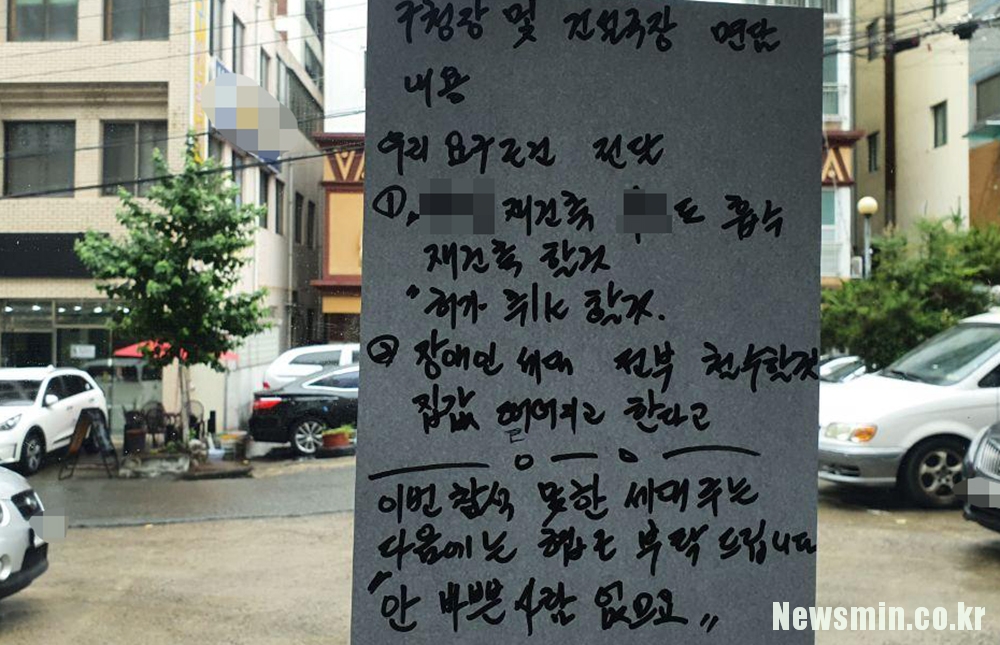 구청장 및 건설국장 면담
내용
우리 요구조건 전달
①. 재건축 도 흡수
재건축 할것
"허가 취소 할것.
② 장애인 세대 전부 철수할것
집값 떨어지고 한다고
이번 참석 못한 세대주는
다음에는 협조 부탁 드립니다
"안 바쁜 사람 없으요"
VA
A
Newsmin.co.kr